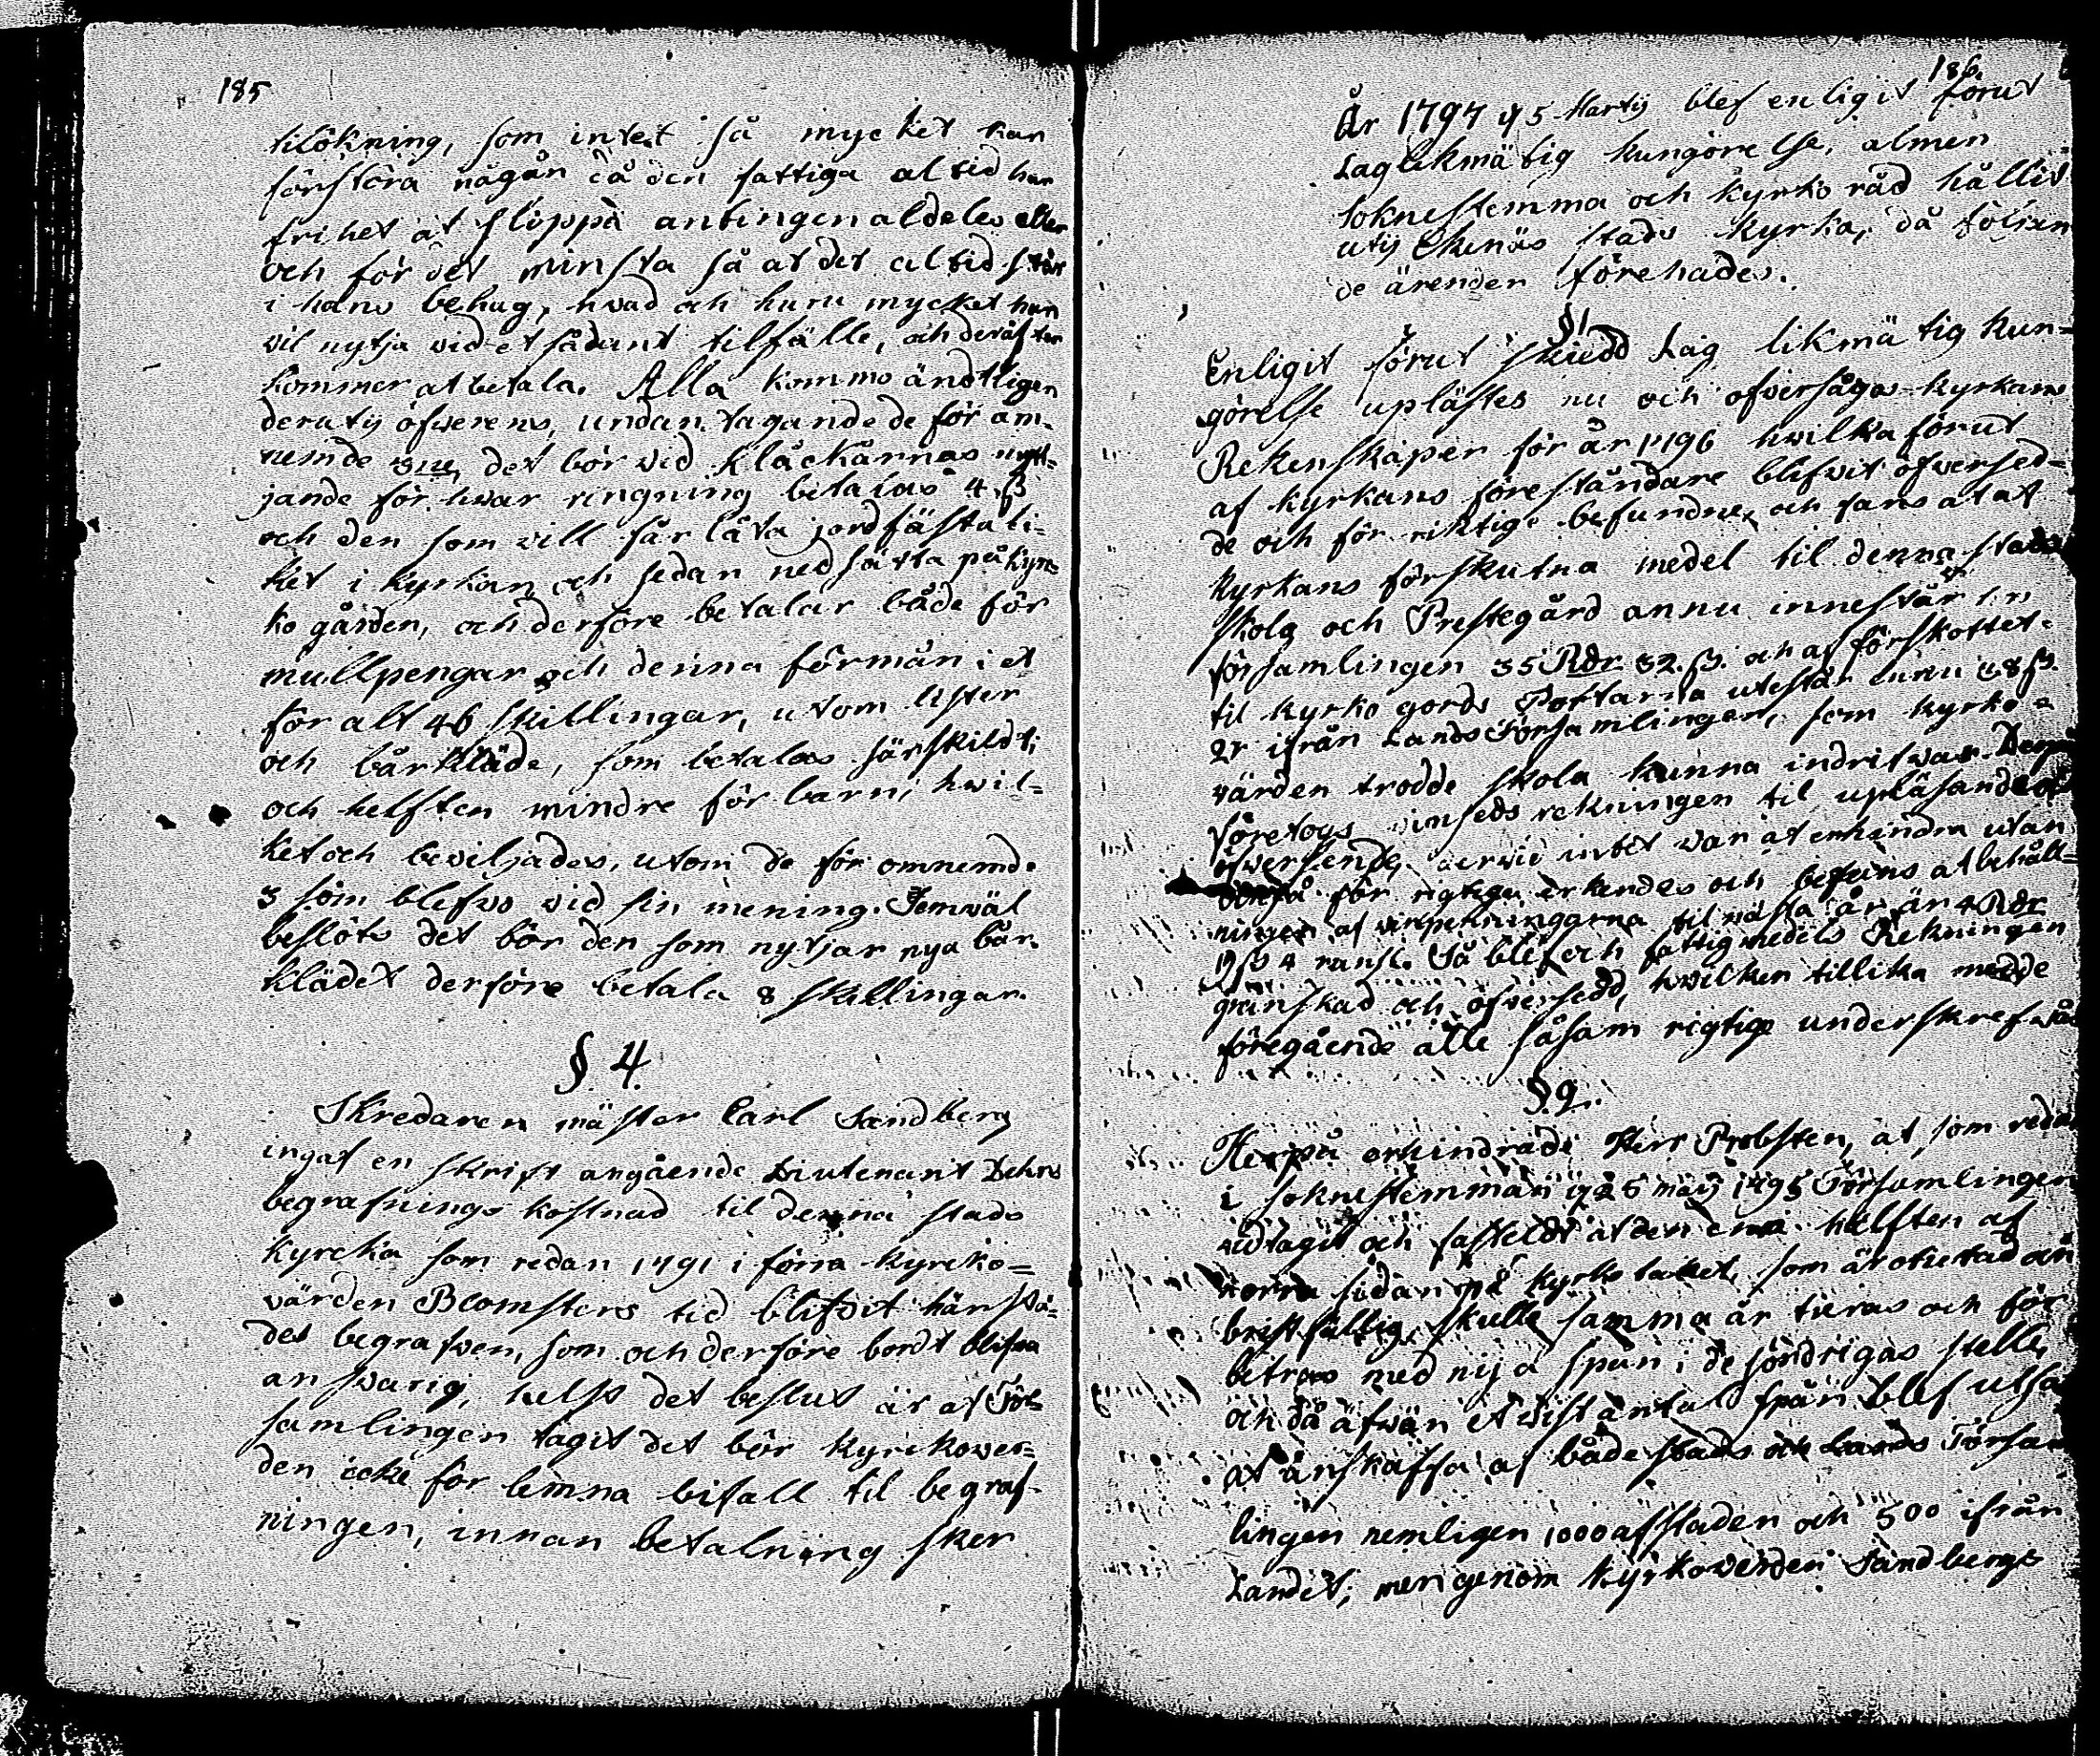 185
tilökning, som intet så mycket kan
förstöra någån då den fattiga altid har
frihet at slippa antingen aldeles eller
och för det minsta så at det altid står
i hans behag, hvad och huru mycket han
vil nytja vid et sådant tilfälle, och deräfter
kommer at betala. Alla kommo ändtligen
derutij öfwerens, undantagande de för om-
nemde 3ne, det bör vid klåckarnas nytt-
jande för hwar ringning betalas 4 ß
och den som vill får låta jordfästa li-
ket i kyrkan och sedan nedsätta på kyr-
ko gården, och derföre betalar både för
mullpengar och denna förmån i et
för alt 46 skillingar, utom lister
och bårkläde, som betalas särskildt,
och helften mindre för barn, hwil-
ket och beviljades, utom de för omnemde
3 som blefwo vid sin mening. Jemwäl
beslöts det bör den som nytjar nya bår-
klädet derföre betala 8 skillingar.
§. 4.
Skredaren mäster Carl Sandberg
ingaf en skrift angående Liutenant Dehns
begrafnings kostnad til denna stads
kyrcka som redan 1791 i förra kyrcko-
värden Blomsters tid blifvit här stä-
det begrafwen, som och derföre bordt blifva
answarig, helst det beslut är af För-
samlingen tagit det bör kyrckover-
den icke för lemna bifall til begraf-
ningen, innan betalning sker
186.
År 1797 d 5 Martij blef enligit förut
Laglikmätig kungörelse, almen
soknestemma och kyrko råd hållit
utij Ekenäs stads kyrka, då följan
de ärenden förehades.
§1
Enligit förut skiedd Lag likmätig kun-
görelse uplästes nu och öfversågos kyrkans
Rekenskaper för år 1796 hwilka förut
af kyrkans föreståndare blifvit öfversed-
de och för riktige befundne, och fans at at
kyrkans förskutna medel til denna stads
skola och Prestegård annu innestår
församlingen 35 Rdr 32 ß. och af förskottet
til kyrko gords Portarna utestår ännu 28 ß.
2r ifrån Lands Församlingen, som kyrko
värden trodde skola kunna indrifwas.
företogs vinseds rekningen til upläsande och
öfwerseende, intet var at erhindra utan
för rigtige erkendes och befans at behåll-
ningen af vinpenningarna til nästa år är 4 Rdr
ß 4 ranst. Så blef och fattigmedels Rekningen
granskad och öfversedd, hvilken tillika medde
föregående alle såsom rigtige underskrefwos
§.2.
Herpå erhindrade Herr Probsten, at som redan
i soknestemman d 25 maij 1795 Församlingen
vidtagit och fasteldt at den ena hälften af
norra sidan på kyrko taket, som är otietad och
bristfällig, skulle samma år tieras och för
betras med nija spån i de söndrigas stelle,
och då äfwän et vist antal spån blef utsa
at anskaffa af både stads och Lands Försam
lingen nemligen 1000 af staden och 500 ifrån
Landet; men genom kyrkoverden Sandbergs